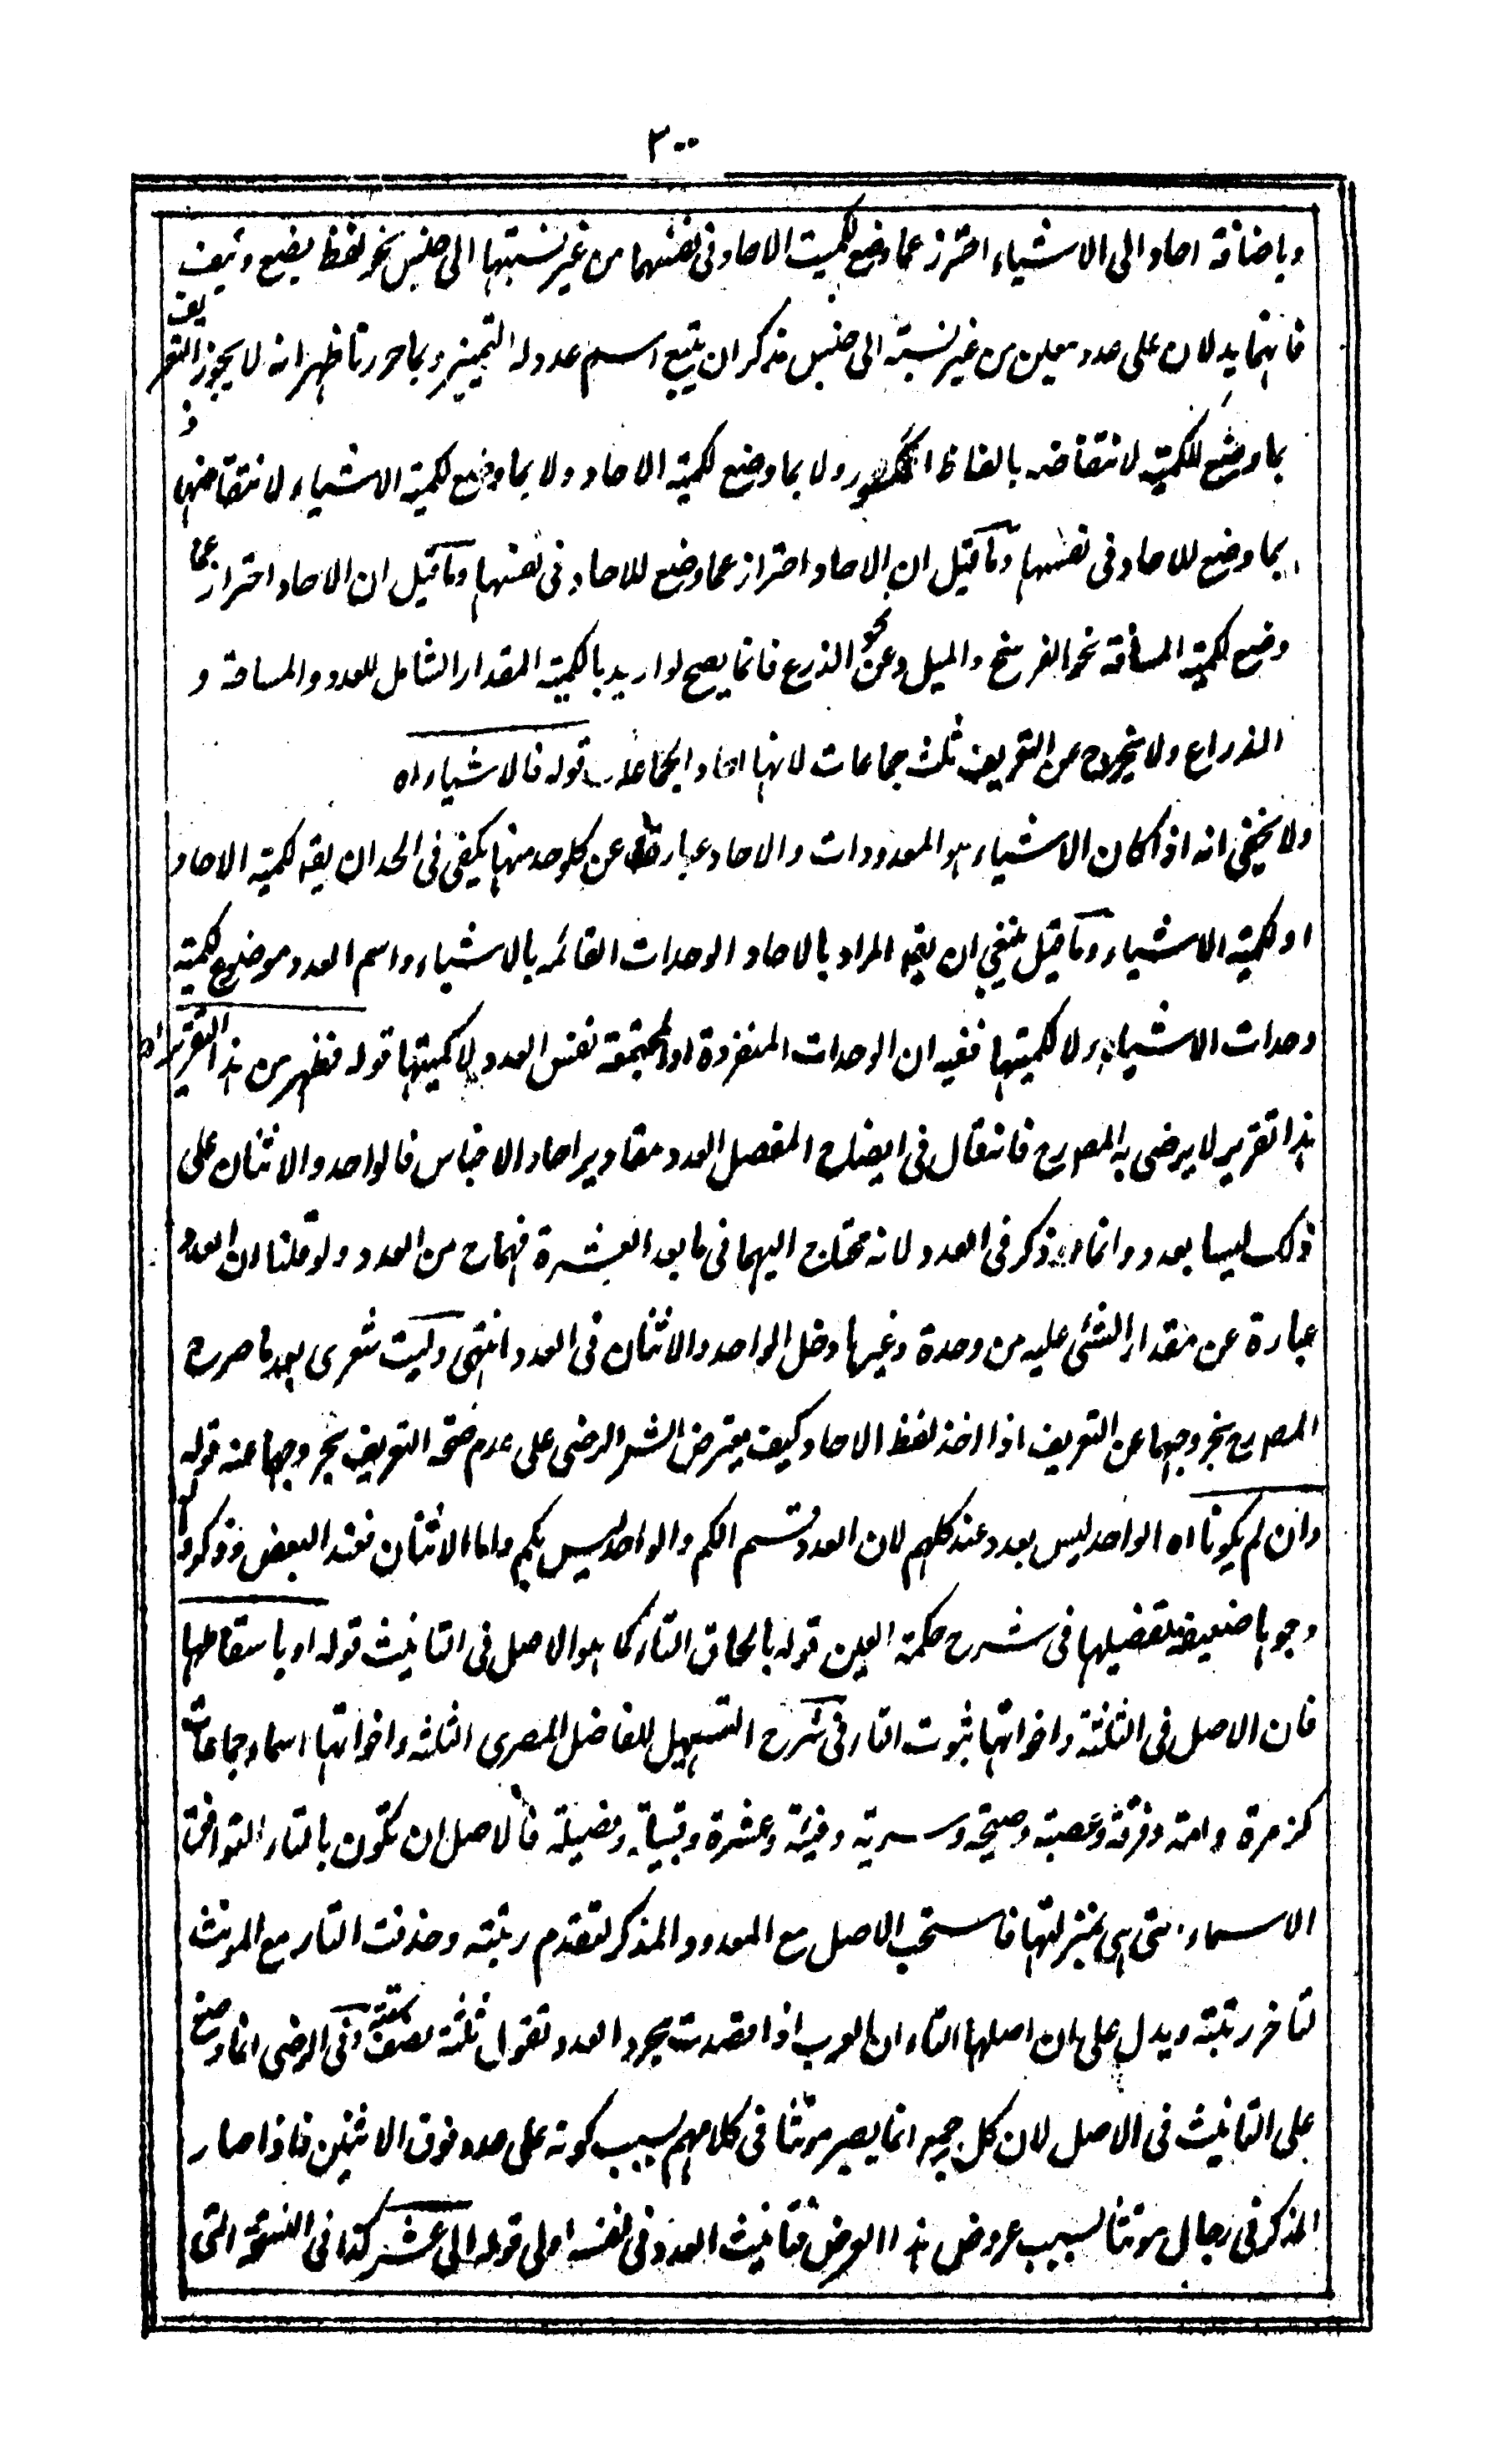 ٣٠٠
وباضافة احاد الى الاشياء احترز عما وضع لكمية الاحاد فى نفسهما من غير نسبتها الى جنس نحو لفظ بضع ونيف
فانهما يدلان على عدد معين من غير نسبة الى جنس مذكر ان يتبع اسم عدد له التميز وبما حررنا ظهر انه لا يجوز التعريف
بما وضع للكمية لانتقاضه بالفاظ الكسور ولا بما وضع لكمية الاحاد ولا بما وضع لكمية الاشياء لانتقاضها
بما وضع للاحاد فى نفسها وما قيل ان الاحاد احتراز عما وضع للاحاد فى نفسها وما قيل ان الاحاد احتراز عما
وضع لكمية المسافة نحو الفرسخ والميل وعن نحو الذرع فانما يصح لو اريد بالكمية المقدار الشامل للعدد والمسافة و
الذراع ولا يخرج عن التعريف ثلث جماعات لانها احاد الجماعات قوله فالاشياء اه
ولا يخفى انه اذا كان الاشياء هو المعدودات والاحاد عبارة عن كل وحد منها يكفى فى الحد ان يقه لكمية الاحاد
او لكمية الاشياء وما قيل ينبغى ان يقه المراد بالاحاد الوحدات القائمه بالاشياء واسم العدد موضوع لكمية
وحدات الاشياء لا لكميتها ففيه ان الوحدات المنفردة او المجتمعة نفس العدد لا كميتها قوله فظهر من هذا التقرير اه
هذا تقرير لا يرضى به المصه رح فانه قال فى ايضاح المفصل العدد مقادير احاد الاجناس فالواحد والاثنان على
ذلك ليسا بعدد وانما ذكر فى العدد لانه محتاج اليهما فى ما بعد العشرة فهما ح من العدد ولو قلنا ان العدد
عبارة عن مقدار الشئى عليه من وحدة وغيرها دخل الواحد والاثنان فى العدد انتهى وليت شعرى بعد ما صرح
المصه رح بخروجهما عن التعريف اذا اخذ لفظ الاحاد كيف يعترض الشه الرضى على عدم صحة التعريف بخروجهما عنه قوله
وان لم يكونا اه الواحد ليس بعدد عند كلهم لان العدد قسم الكم والواحد ليس بكم واما الاثنان فعند البعض وذكروا له
وجوها ضعيفة تفصيلها فى شرح حكمة العين قوله بالحاق التاء كما هو الاصل فى التانيث قوله او باسقاطها
فان الاصل فى الثلثة واخواتها ثبوت التاء فى شرح التسهيل للفاضل المصرى الثلثه واخواتها اسماء جماعات
كزمرة وامة وفرقة وعصبة وصيحة وسرية وفئة وعشرة وقبيلة وفضيلة فالاصل ان تكون بالتاء لتوافق
الاسماء التى هى بمنزلتها فاستحب الاصل مع المعدود المذكر لتقدم رتبته وحذفت التاء مع المونث
لتاخر رتبته ويدل على ان اصلها التاء ان العرب اذا قصدت مجرد العدد تقول ثلثة نصف ستة وفى الرضى انما وضع
على التانيث فى الاصل لان كل جمع انما يصير مونثا فى كلامهم بسبب كونه على عدد فوق الاثنين فاذا صار
المذكر فى رجال مونثا بسبب عروض هذا العرض فتانيث العدد فى نفسه اولى قوله الى عشر كذا فى النسخة التى